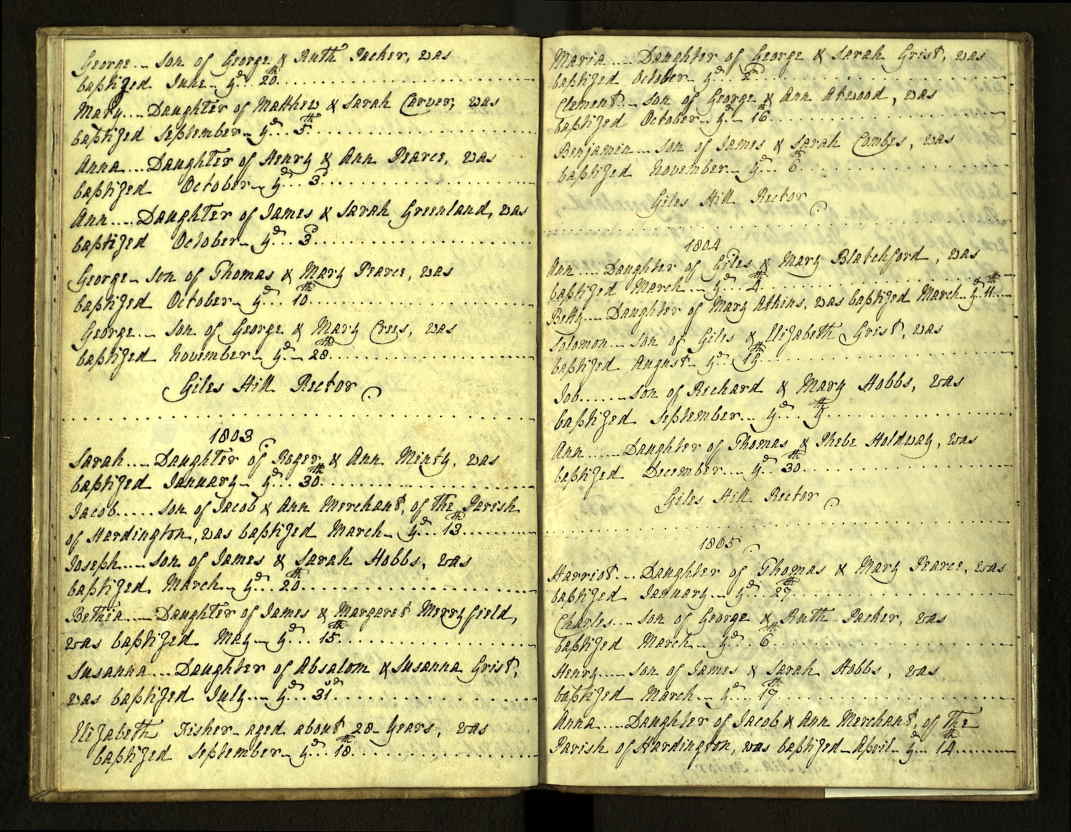 George... Son of George & Ruth Packer, was
baptized June ye 20th
Mary... Daughter of Matthew & Sarah Carver, was
baptized September ye 5th
Anna... Daughter of Henry & Ann Pearce, was
baptized October ye 3d
Ann... Daughter of James & Sarah Greenland, was
baptized October ye 3d
George Son of Thomas & Mary Pearce, was
baptized October ye 10th
George... Son of George & Mary Crees, was
baptized November ye 28th
Giles Hill Rector
1803
Sarah... Daughter of Roger & Ann Minty, was
baptized January ye 30th
Jacob... Son of Jacob & Ann Merchant, of the Parish
of Hardington, was baptized March ye 13th
Joseph... Son of James & Sarah Hobbs, was
baptized March ye 20th
Bethia... Daughter of James & Margaret Merryfield,
was baptized May ye 15th
Susanna... Daughter of Absalom & Susanna Grist,
was baptized July ye 31st
Elizabeth Fisher aged about 28 Years, was
baptized September ye 18th
Maria... Daughter of George & Sarah Grist, was
baptized October ye 2d
Clement... Son of George & Ann Atwood, was
baptized October ye 16th
Benjamin... Son of James & Sarah Combes, was
baptized November ye 6th
Giles Hill Rector
1804
Ann... Daughter of Giles & Mary Blatchford, was
baptized March ye 4th
Betty... Daughter of Mary Atkins, was baptized March ye 11th
Solomon... Son of Giles & Elizabeth Grist, was
baptized August ye 19th
Job... Son of Richard & Mary Hobbs, was
baptized September ye 9th
Ann... Daughter of Thomas & Phebe Holdway, was
baptized December ye 30th
Giles Hill Rector
1805
Harriot... Daughter of Thomas & Mary Pearce, was
baptized January ye 27th
Charles... Son of George & Ruth Packer, was
baptized March ye 6th
Henry... Son of James & Sarah Hobbs, was
baptized March ye 17th
Anna... Daughter of Jacob & Ann Merchant, of the
Parish of Hardington, was baptized April ye 14th